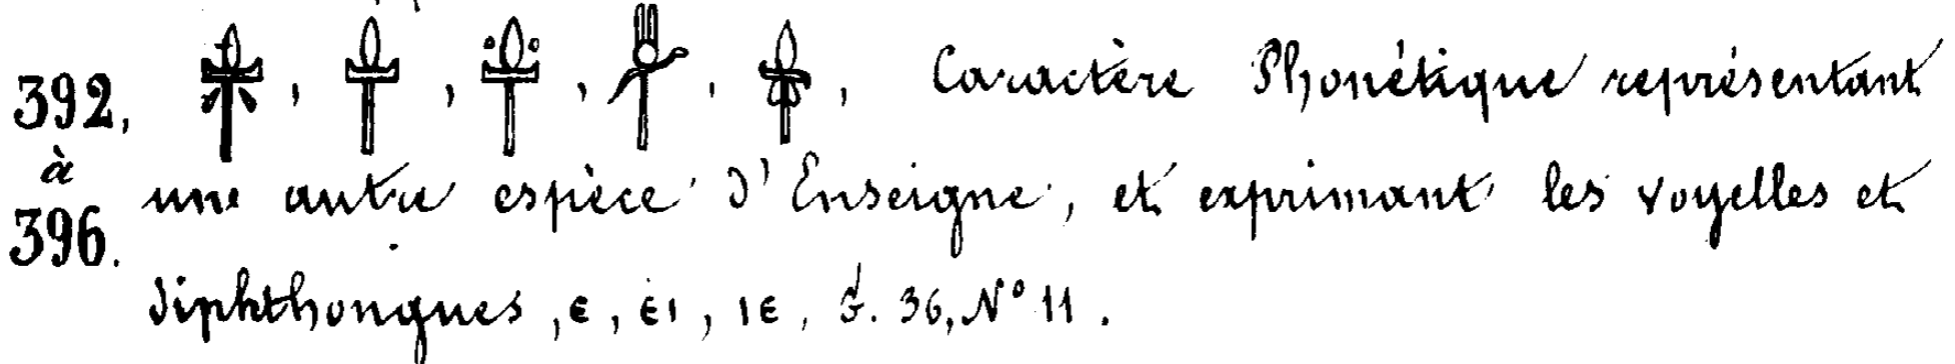 392, , , , , , Caractère Phonétique représentant
à une autre espèce d'Enseigne, et exprimant les voyelles et
396. diphthongues, ⲉ, ⲉⲓ, ⲓⲉ, G. 36, N° 11.